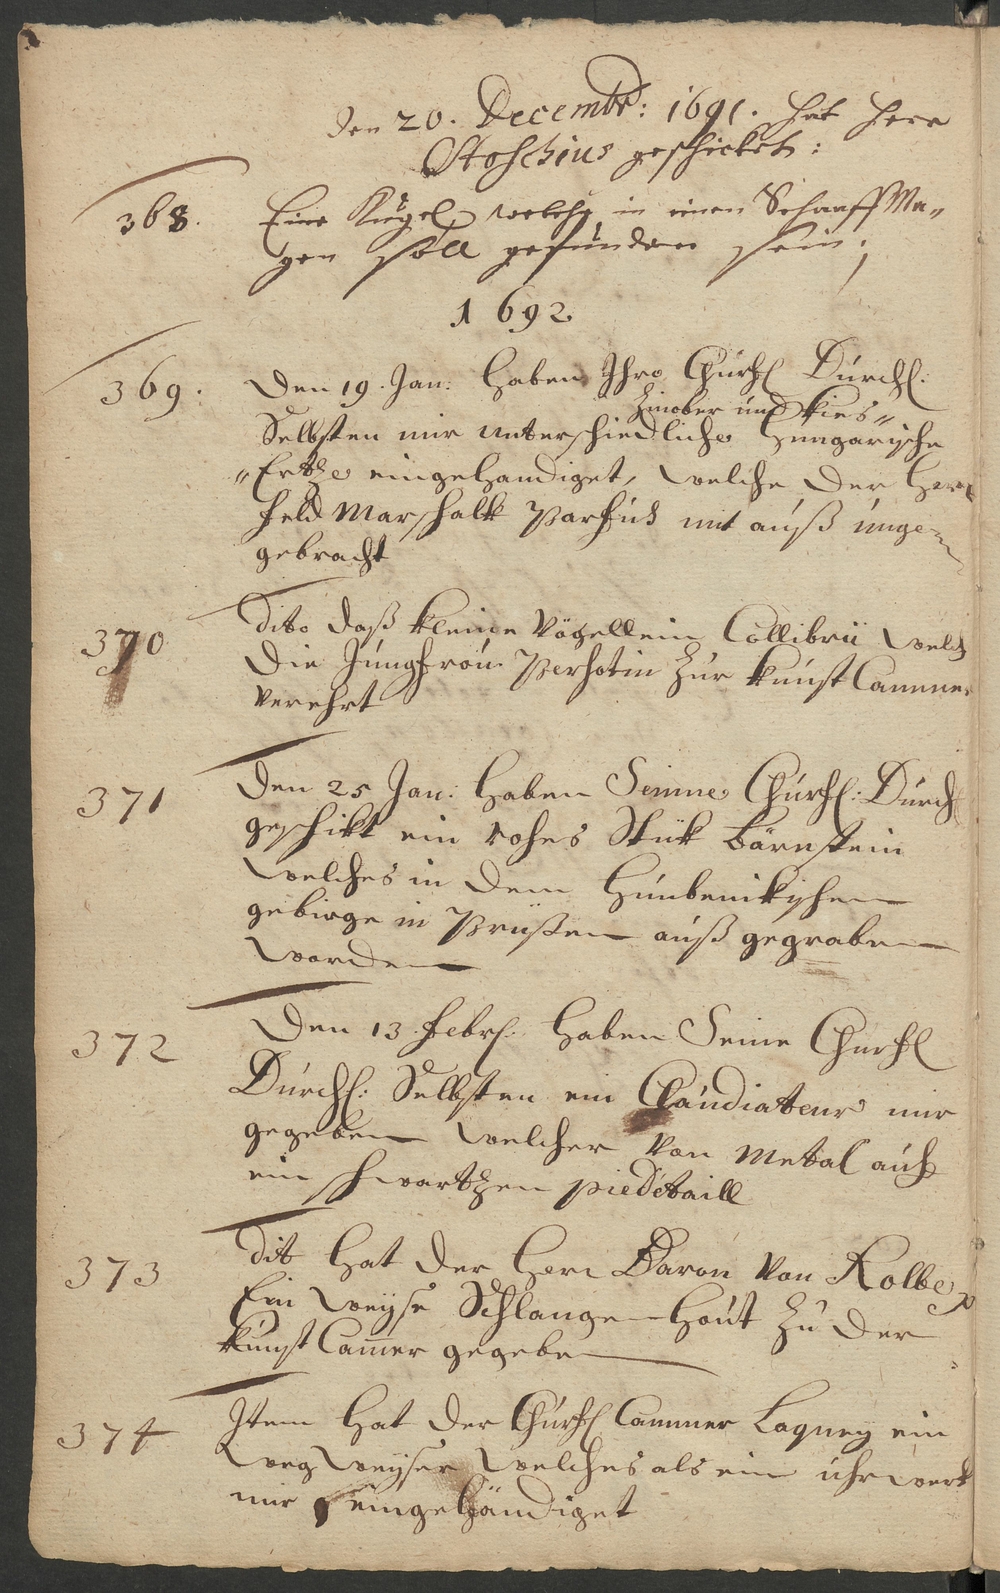 den 20. Decembr: 1691. hat Herr
Stoschius geschicket:
368. Eine Kugel, welche in einen Schaaff Ma-
gen soll gefunden sein;
1692
369. Den 19. Jan: haben Ihro Churfl Durchl:
Zinober und Kies"
Selbsten mir unterschiedliche Hungarische
"Ertze eingehandiget, welche der Herr
Feld Marschalk Parfus mit auß unge=
gebracht
370 dito daß kleine Vögellein Collibrii welch
die Jungfrou Perhotin zur Kunst Cammer
verehrt
371 Den 25 Jan: haben Seinne Churfl: Durchl
geschikt ein rohes Stük Bärnstein
welches in dem
gebirge in Prüßen auß gegraben
worden
372 Den 13 Febr: haben Seine Churfl
Durchl: Selbsten ein Claudiateur mir
gegeben welcher von Metal auf
ein schwartzen piedetaill
373 dito hat der Herr Baron von Kolbe
Ein weyse Schlangen Hout zu der
Kunst Camer gegeben
374 Item hat der Churfl Cammer Laquey ein
weg weyser welches als ein uhrwerk
mir eingehändiget